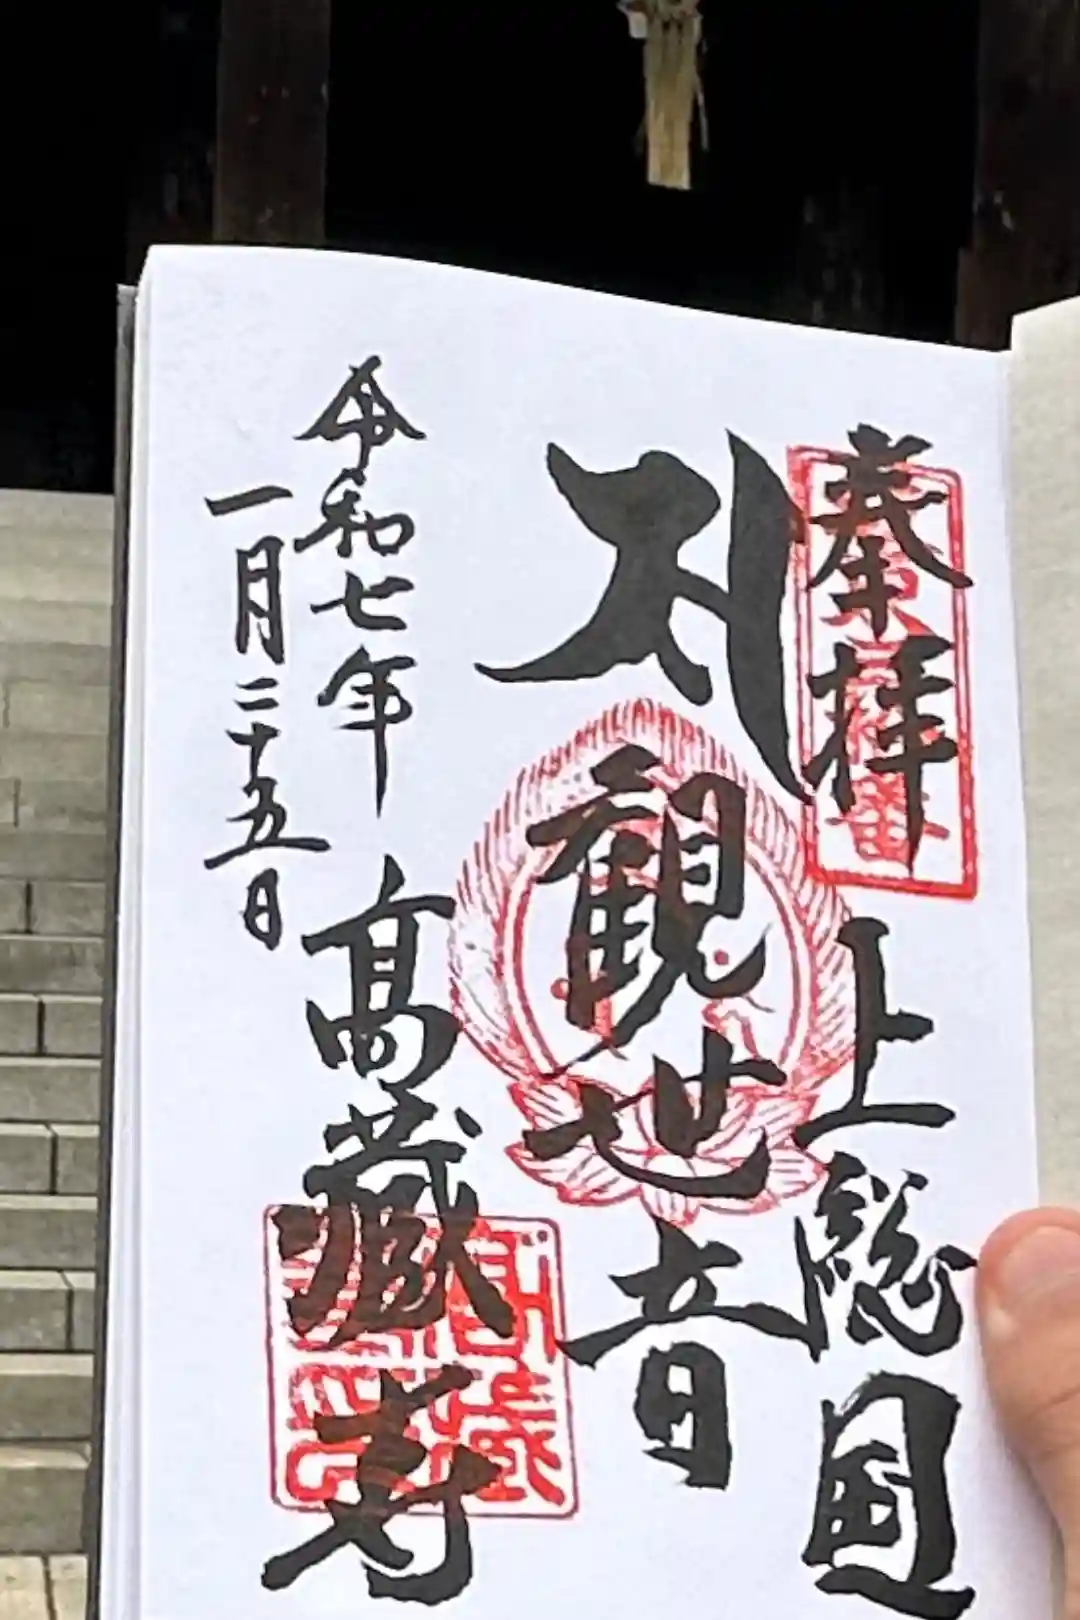 奉拝
上総国
サ 観世音
高蔵寺
令和七年
一月二十五日